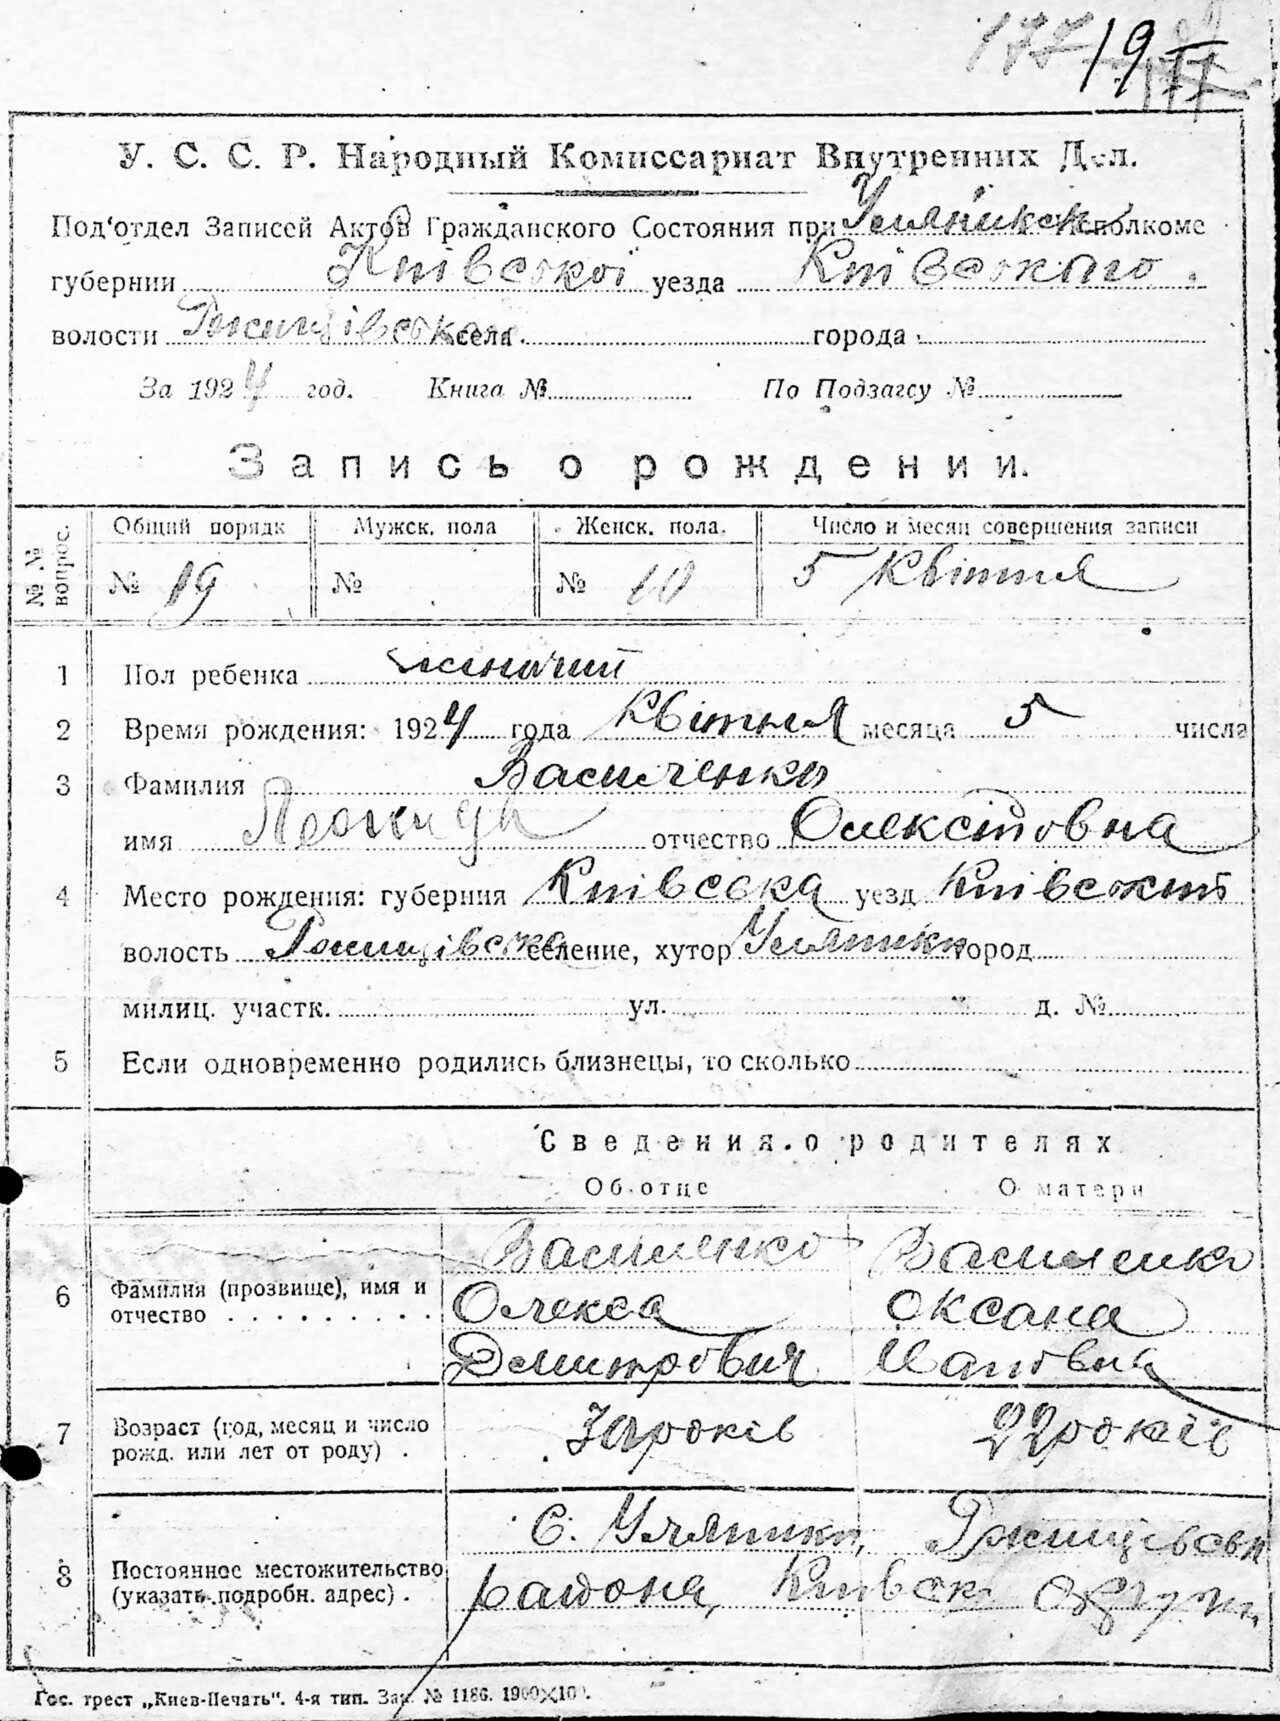 177 19
У. С. С. Р. Народный Комиссариат Внутренних Дел.
Под'отдел Записей Актов Гражданского Состояния при Уляниках исполкоме
губернии Київської уезда Київського.
волости Ржищівської села города
За 1924 год. Книга № По Подзагсу №
Запись о рождении.
№№ вопрос. Общий порядк Мужск. пола Женск. пола. Число и месяц совершения записи
№ 19 № № 10 5 Квітня
1 Пол ребенка жиночий
2 Время рождения: 1924 года Квітня месяца 5 числа
3 Фамилия Василенко
имя отчество Олексіївна
4 Место рождения: губерния Київська уезд Київський
волость Ржищівська селение, хутор Уляники город
милиц. участк. ул. д. №
5 Если одновременно родились близнецы, то сколько
Сведения о родителях
Об отце О матери
Василенко Василенко
6 Фамилия (прозвище), имя и Олекса Оксана
отчество Дмитрович
7 Возраст (год, месяц и число рожд. или лет от роду) років 22 років
С. Уляники, Ржищівськ
8 Постоянное местожительство
(указать подробн. адрес) района, Київськ Округи
Гос. трест „Киев-Печать". 4-я тип. Зак. № 1186. 1900×100.